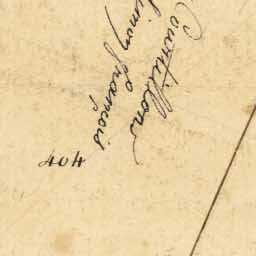 Curtillon
Simon François
404